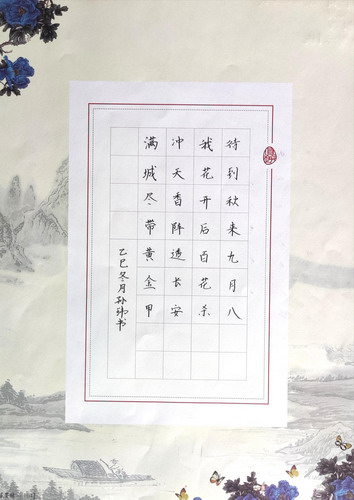 待到秋来九月八
我花开后百花杀
冲天香阵透长安
满城尽带黄金甲
乙巳冬月孙玮书